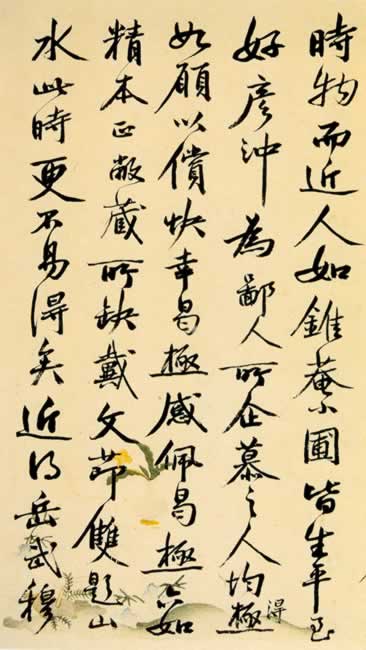 時物而近人如錐菴小圃皆生平至
好彥沖為鄙人所企慕之人均極得
如願以償快幸曷極感佩曷極六如
精本正敝藏所缺戴文節雙題山
水此時更不易得矣近得岳武穆